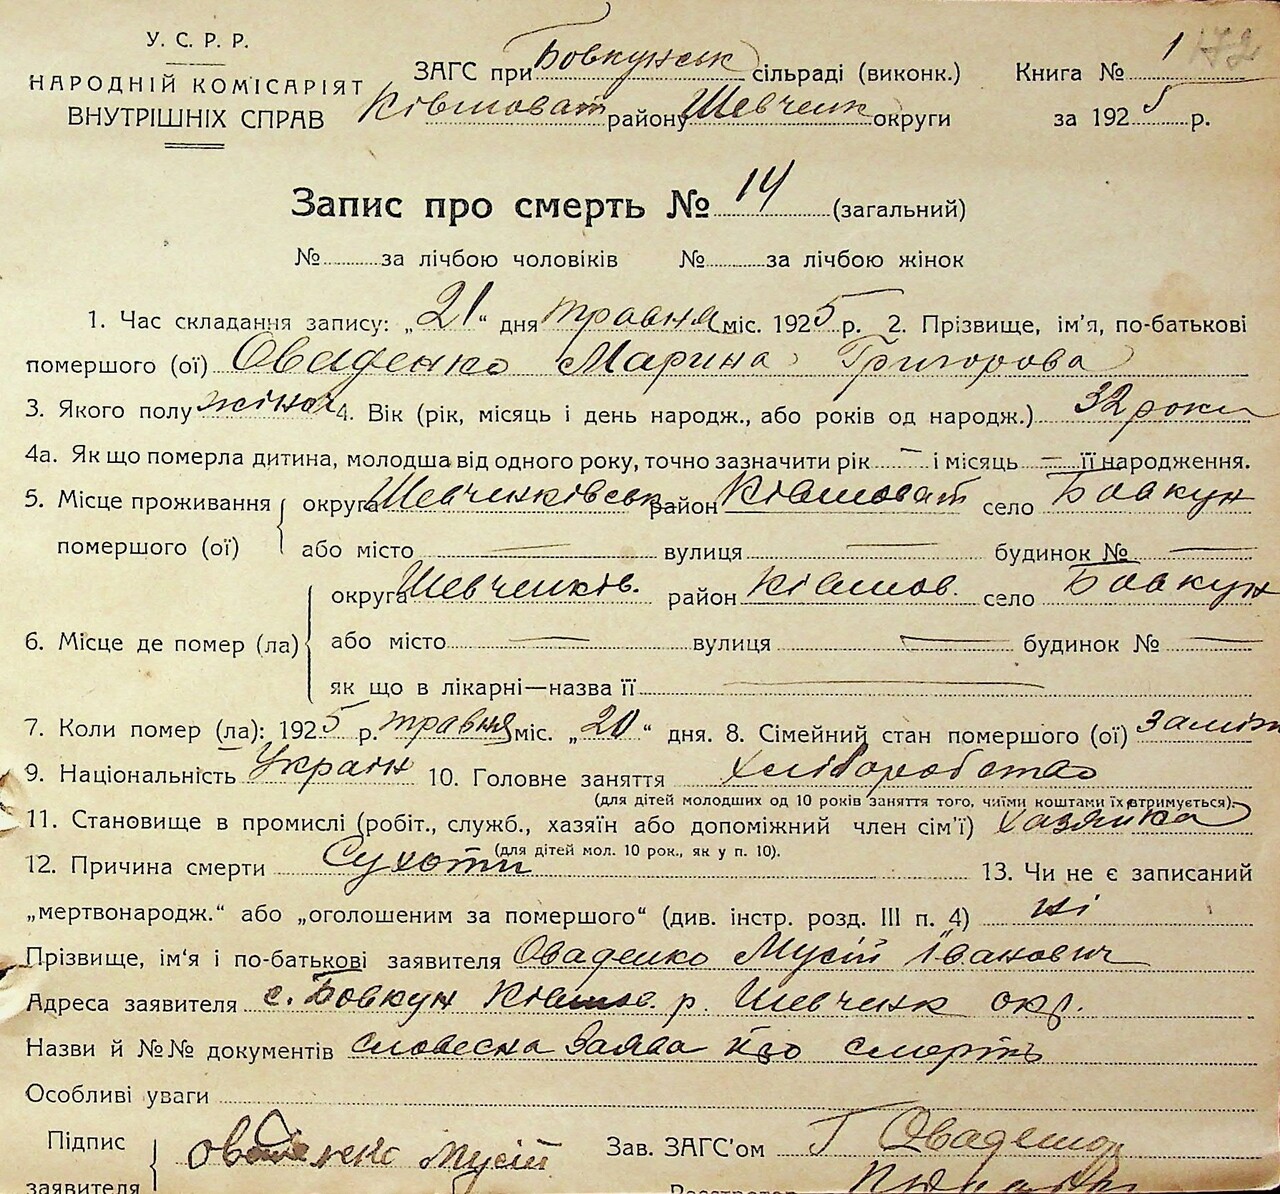 У. С. Р. Р.
НАРОДНІЙ КОМІСАРІЯТ
ВНУТРІШНІХ СПРАВ
ЗАГС при Бовкунськ сільраді (виконк.)
Ківшоват району Шевченк округи
Книга № 1 172
за 1925 р.
Запис про смерть № 14 (загальний)
№ за лічбою чоловіків № за лічбою жінок
1. Час складання запису: „21“ дня травня міс. 1925 р. 2. Прізвище, ім'я, по-батькові
помершого (ої) Оваденко Марина Григорова
3. Якого полу жіноч 4. Вік (рік, місяць і день народж., або років од народж.) 32 роки
4а. Як що померла дитина, молодша від одного року, точно зазначити рік — і місяць — її народження.
5. Місце проживання помершого (ої) округа Шевченківськ район Ківшоват село Бовкун
або місто — вулиця — будинок № —
6. Місце де помер (ла) округа Шевченків. район Ківшов. село Бовкун
або місто — вулиця — будинок № —
як що в лікарні—назва її —
7. Коли помер (ла): 1925 р. травня міс. „20“ дня. 8. Сімейний стан помершого (ої) Заміж
9. Національність Україн 10. Головне заняття хліборобство
(для дітей молодших од 10 років заняття того, чиїми коштами їх утримується).
11. Становище в промислі (робіт., служб., хазяїн або допоміжний член сім'ї) хазяйка
(для дітей мол. 10 рок., як у п. 10).
12. Причина смерти Сухоти 13. Чи не є записаний
„мертвонародж.“ або „оголошеним за помершого“ (див. інстр. розд. III п. 4) ні
Прізвище, ім'я і по-батькові заявителя Оваденко Мусій Іванович
Адреса заявителя с. Бовкун Ківшов. р. Шевченк окр.
Назви й №№ документів словесна Заява про смерть
Особливі уваги
Підпис заявителя Оваденко Мусій
Зав. ЗАГС'ом Г Оваденко
Реєстратор